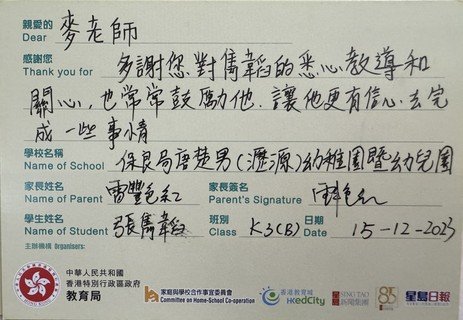 親愛的
Dear 麥老師
感謝您
Thank you for 多謝您對雋韜的悉心教導和
關心,也常常鼓勵他,讓他更有信心去完
成一些事情
學校名稱
Name of School 保良局唐楚男(瀝源)幼稚園暨幼兒園
家長姓名 家長簽名
Name of Parent 雷艷紅 Parent's Signature
學生姓名 班別 日期
Name of Student 張雋韜 Class K3(B) Date 15-12-2023
主辦機構 Organisers:
中華人民共和國
香港特別行政區政府
教育局
家庭與學校合作事宜委員會
Committee on Home-School Co-operation
香港教育城
HKedCity
星島 SING TAO
新聞集團
85
星島日報